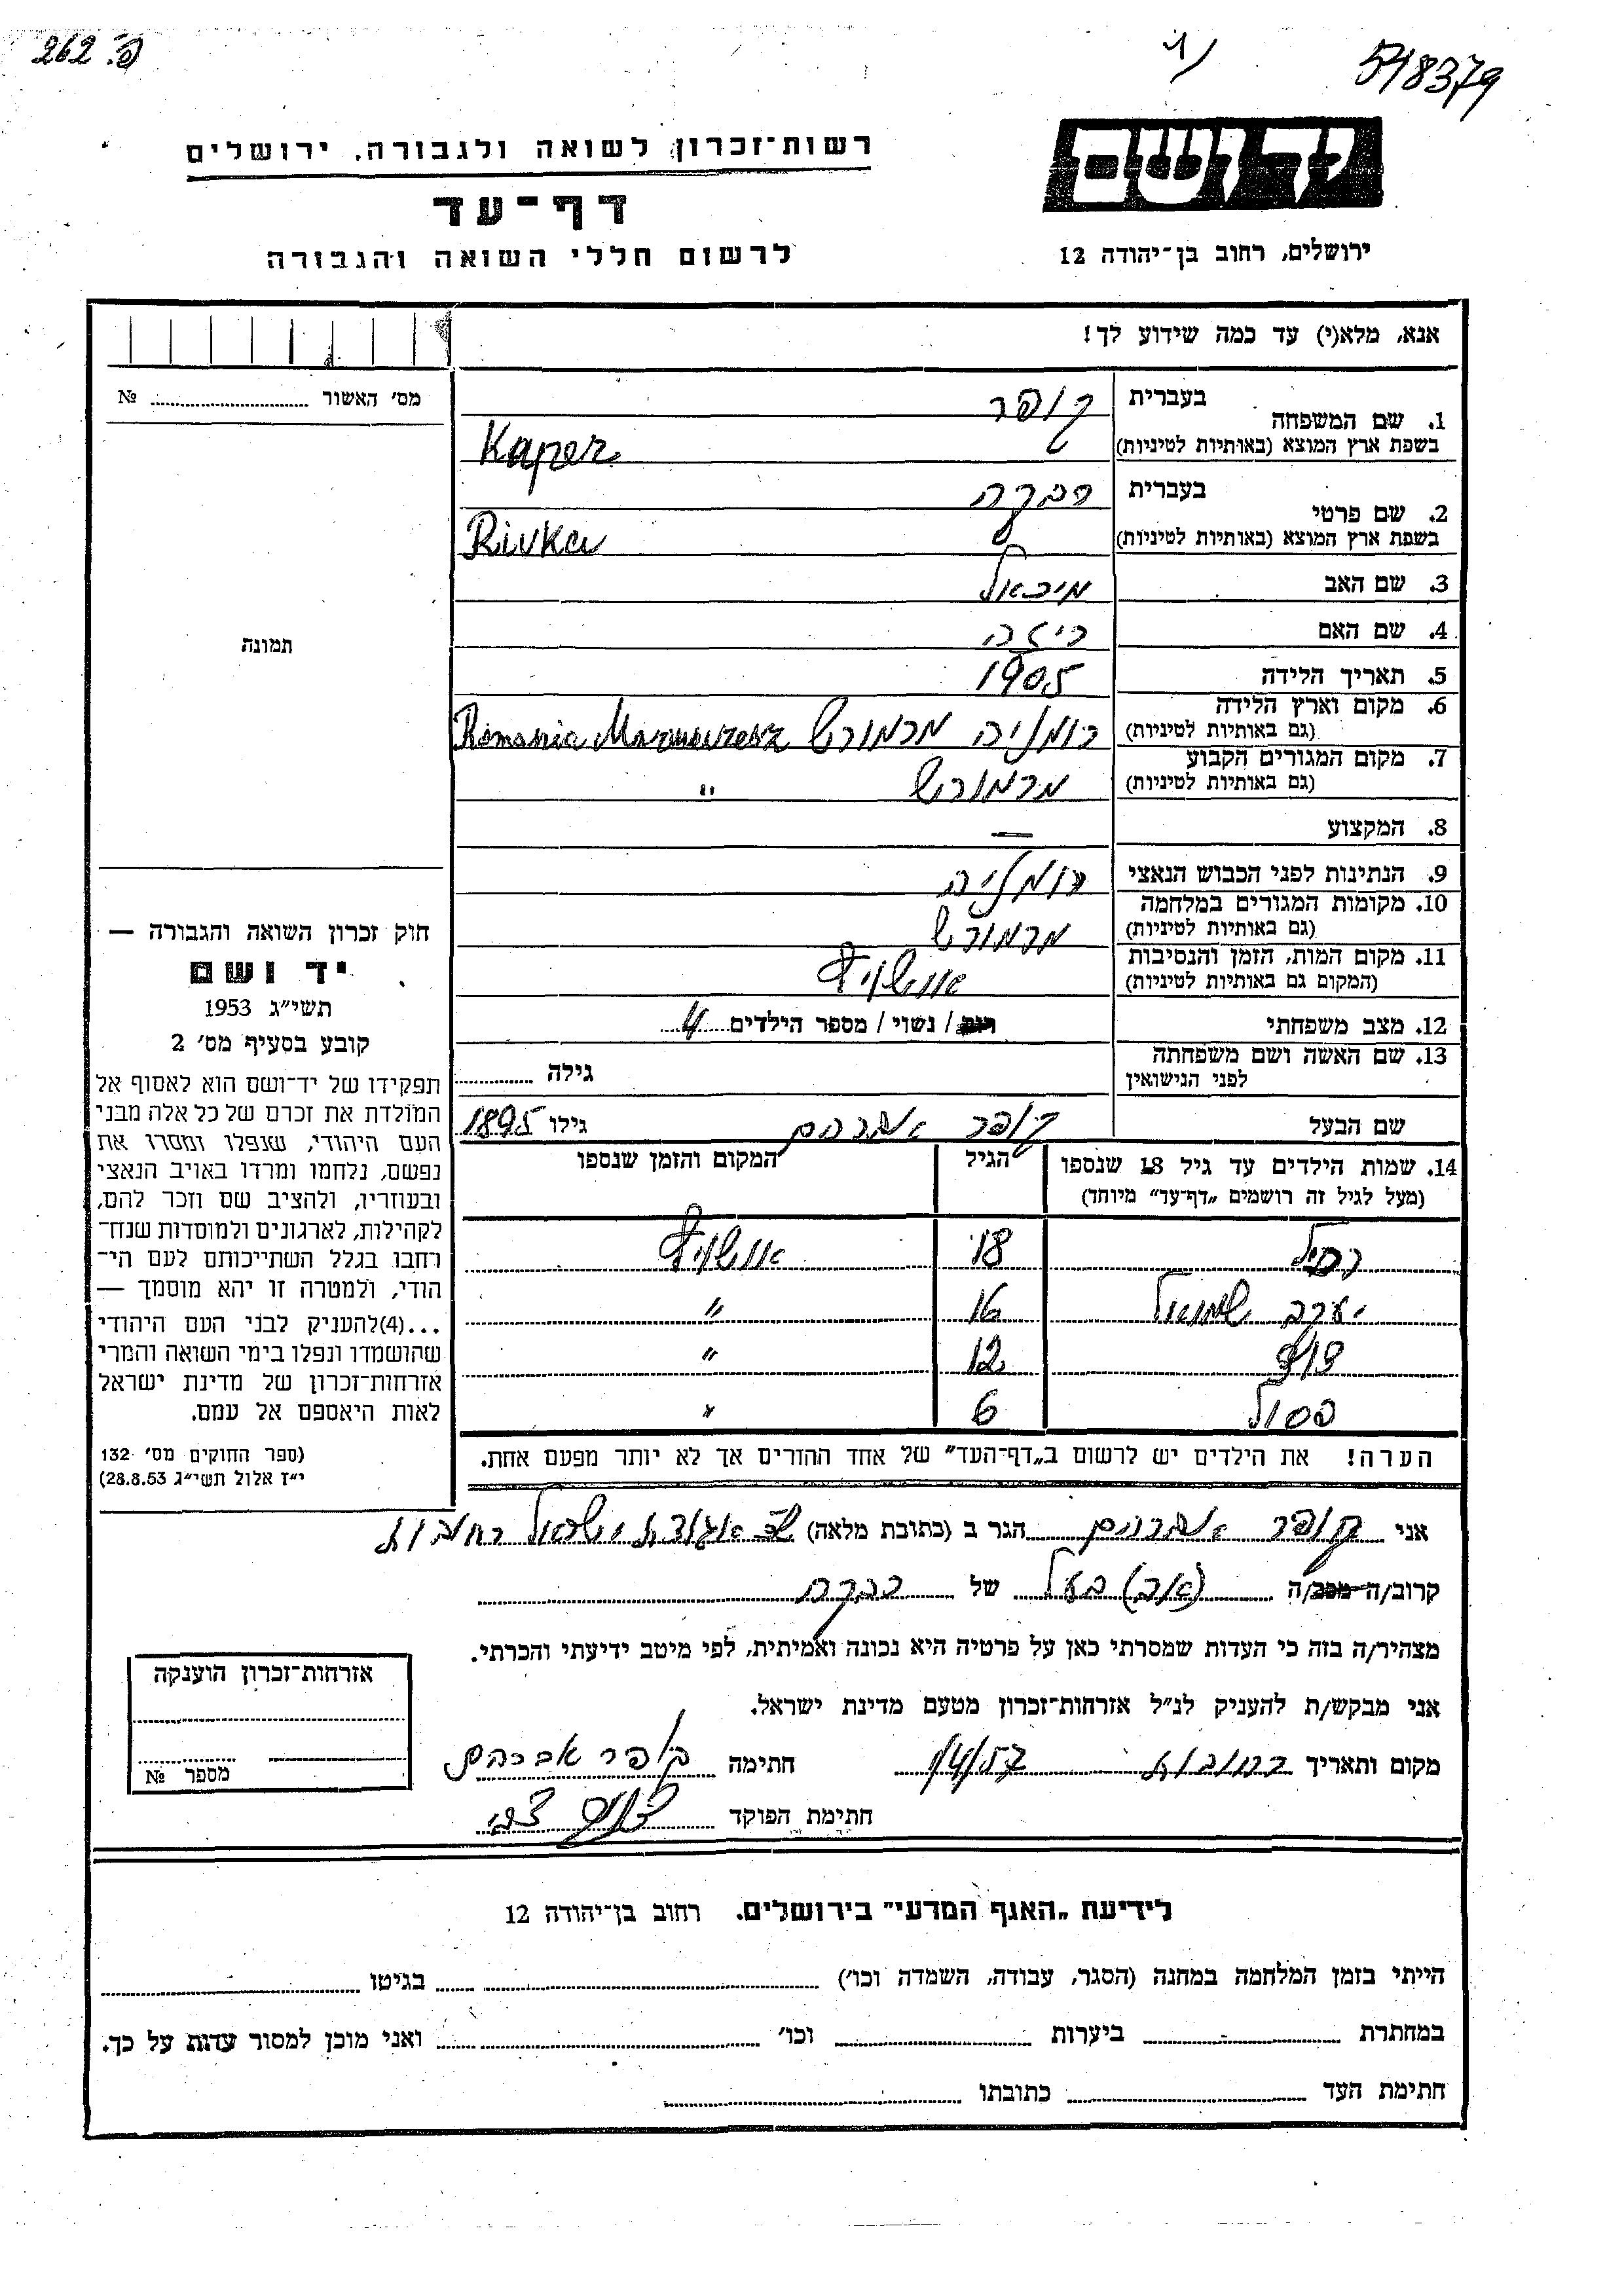 262 .פ
548379
רשות־זכרון לשואה ולגבורה, ירושלים
יד ושם
דף־עד
לרשום חללי השואה והגבורה
ירושלים, רחוב בן־יהודה 12
אנא, מלא(י) עד כמה שידוע לך!
מס׳ האשור № 
תמונה
1. שם המשפחה בעברית קופר
בשפת ארץ המוצא (באותיות לטיניות) Kaper
2. שם פרטי בעברית רבקה
בשפת ארץ המוצא (באותיות לטיניות) Rivka
3. שם האב מיכאל
4. שם האם
5. תאריך הלידה 1905
6. מקום וארץ הלידה
(גם באותיות לטיניות) רומניה מרמורש Romania
7. מקום המגורים הקבוע
(גם באותיות לטיניות) מרמורש "
8. המקצוע —
9. הנתינות לפני הכבוש הנאצי רומניה
10. מקומות המגורים במלחמה
(גם באותיות לטיניות) מרמורש
11. מקום המות, הזמן והנסיבות
(המקום גם באותיות לטיניות) אושויץ
12. מצב משפחתי רוק / נשוי / מספר הילדים 4
13. שם האשה ושם משפחתה
לפני הנישואין גילה
שם הבעל קופר אברהם גילו 1895
14. שמות הילדים עד גיל 18 שנספו
(מעל לגיל זה רושמים „דף־עד" מיוחד)
הגיל
המקום והזמן שנספו
רחל 18 אושויץ
יעקב שמואל 16 "
12 "
6 "
הערה! את הילדים יש לרשום ב„דף־העד" של אחד ההורים אך לא יותר מפעם אחת.
חוק זכרון השואה והגבורה —
יד ושם
תשי״ג 1953
קובע בסעיף מס׳ 2
תפקידו של יד־ושם הוא לאסוף אל
המולדת את זכרם של כל אלה מבני
העם היהודי, שנפלו ומסרו את
נפשם, נלחמו ומרדו באויב הנאצי
ובעוזריו, ולהציב שם וזכר להם,
לקהילות, לארגונים ולמוסדות שנח־
רבו בגלל השתייכותם לעם הי־
הודי, ולמטרה זו יהא מוסמך —
...(4)להעניק לבני העם היהודי
שהושמדו ונפלו בימי השואה והמרי
אזרחות־זכרון של מדינת ישראל
לאות היאספם אל עמם.
(ספר החוקים מס׳ 132
י״ז אלול תשי״ג 28.8.53)
אני קופר אברהם הגר ב (כתובת מלאה) שכ אגודת ישראל רחובות
קרוב/ה מכר/ה (או) בעל של רבקה
מצהיר/ה בזה כי העדות שמסרתי כאן על פרטיה היא נכונה ואמיתית, לפי מיטב ידיעתי והכרתי.
אני מבקש/ת להעניק לנ״ל אזרחות־זכרון מטעם מדינת ישראל.
מקום ותאריך רחובות 1/4/57 חתימה קופר אברהם
חתימת הפוקד
אזרחות־זכרון הוענקה
מספר №
לידיעת „האגף המדעי" בירושלים. רחוב בן־יהודה 12
הייתי בזמן המלחמה במחנה (הסגר, עבודה, השמדה וכו׳) בגיטו
במחתרת ביערות וכו׳ ואני מוכן למסור עדות על כך.
חתימת העד כתובתו